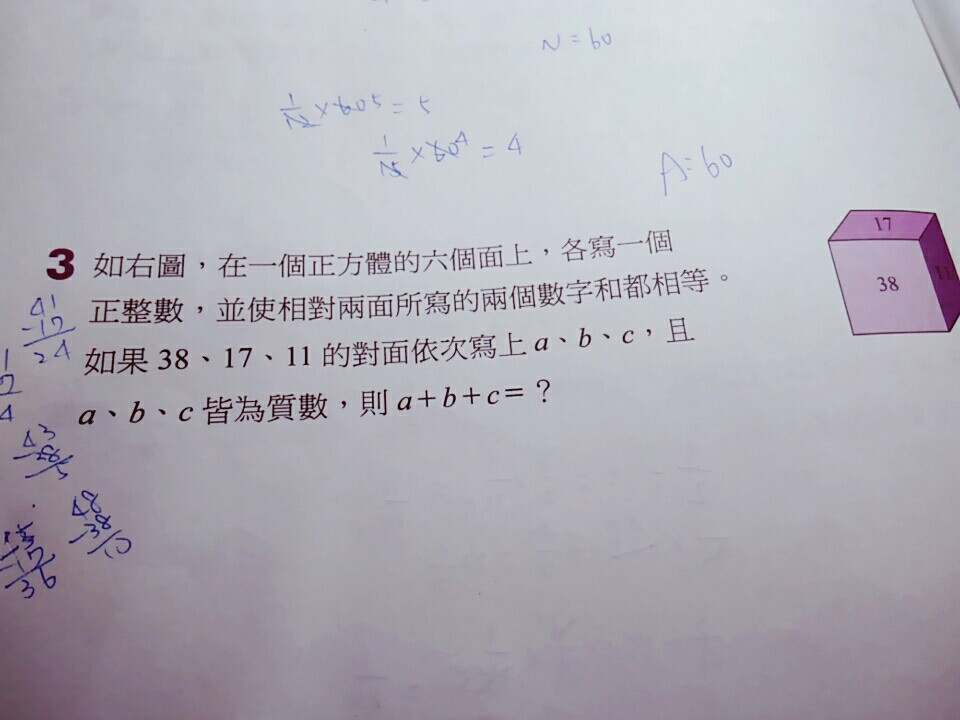 N = 60
1/12 × 60 5 = 5
1/15 × 60 4 = 4
A = 60
3 如右圖，在一個正方體的六個面上，各寫一個
正整數，並使相對兩面所寫的兩個數字和都相等。
如果 38、17、11 的對面依次寫上 a、b、c，且
a、b、c 皆為質數，則 a+b+c=？
17
38
11
41
-17
24
43
-38
5
48
-38
10
36